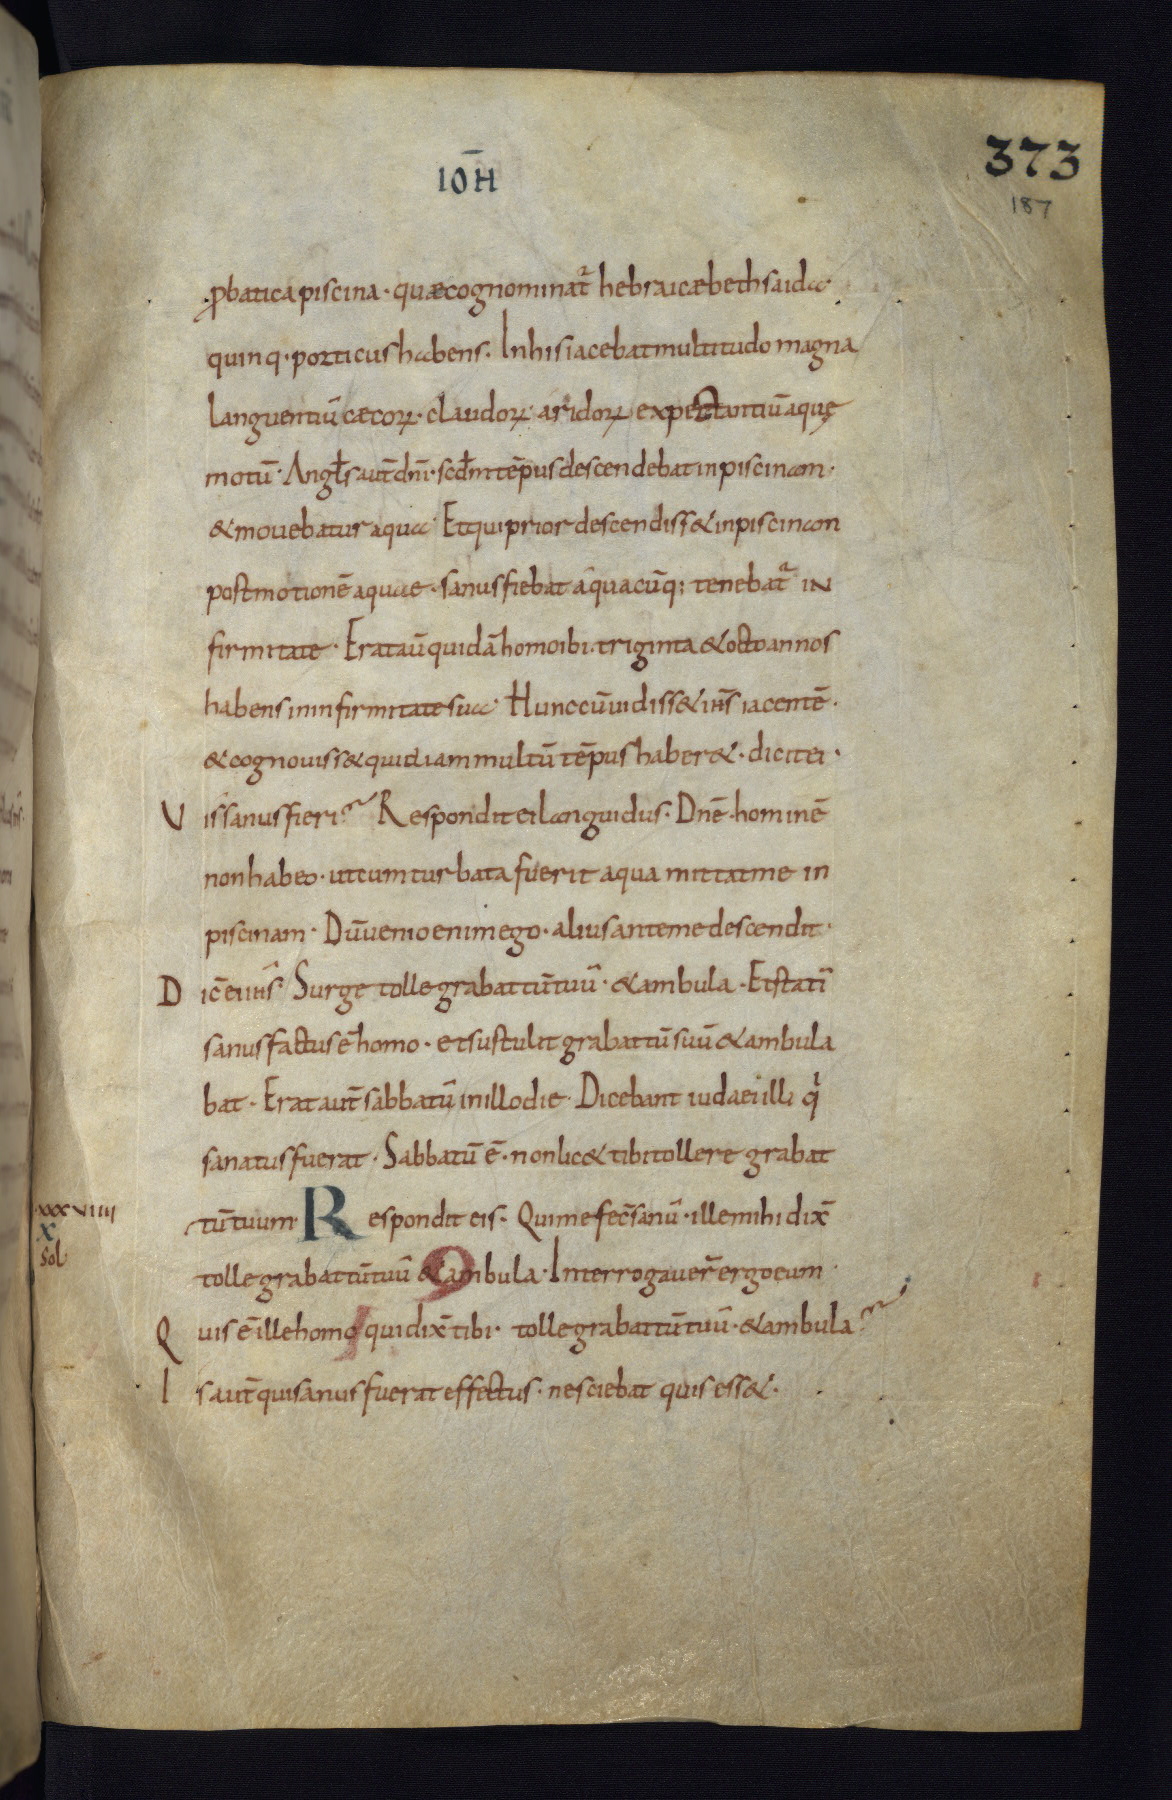 IOH̄
373
187
ꝓbatica piscina · quæ cognominat᷑ hebraicæ bethsaida ·
quinq · porticus habens · In his iacebat multitudo magna
languentiū cæcoꝝ · claudoꝝ · aridoꝝ expectantiū aquę
motū · Angl̄s aut̄ dn̄i · scd̄m tēpus descendebat in piscinam ·
& mouebatur aqua · Et qui prior descendiss& in piscinam
post motionē aquae · sanus fiebat a quacūq; tenebat᷑ in
firmitate · Erat aū quidā homo ibi · triginta & octo annos
habens in infirmitate sua · Hunc cū uidiss& ih̄s iacentē ·
& cognouiss& quia iam multū tēpus haber& · dicit ei ·
Vis sanus fieri? Respondit ei languidus · Dn̄e · hominē
non habeo · ut cum turbata fuerit aqua mittat me in
piscinam · Dū uenio enim ego · alius ante me descendit ·
Dic̄ ei ih̄s · Surge tolle grabattū tuū · & ambula · Et statī
sanus factus ē homo · et sustulit grabattū suū & ambula
bat · Erat aut̄ sabbatū in illo die · Dicebant iudaei illi qͥ
sanatus fuerat · Sabbatū ē · non lic& tibi tollere grabat
xxxviiii
tū tuum · Respondit eis · Qui me fec̄ sanū · ille mihi dix̄
X
Sol
tolle grabattū tuū & ambula · Interrogauer̄ ergo eum ·
Quis ē ille homo qui dix̄ tibi · tolle grabattū tuū · & ambula?
Is aut̄ qui sanus fuerat effectus · nesciebat quis ess& ·